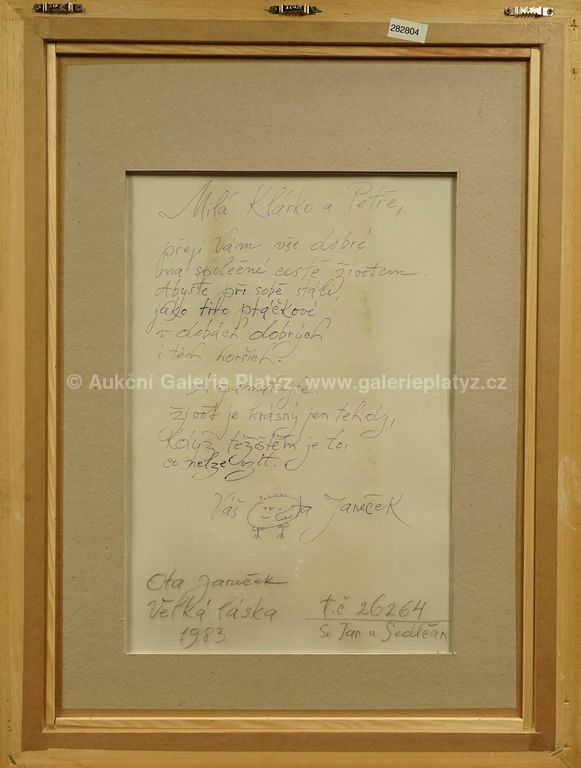 282804
Milá Klárko a Petře,
přeji Vám vše dobré
na společné cestě životem.
Abyste při sobě stáli
jako tito ptáčkové
v dobách dobrých
i těch horších.
A pamatujte.
© Aukční Galerie Platýz, www.galerieplatyz.cz
život je krásný jen tehdy,
když těžištěm je to,
co nelze vzít.
Váš Ota Janeček
Ota Janeček
Velká láska
1983
t.č 26264
Sv. Jan u Sedlčan